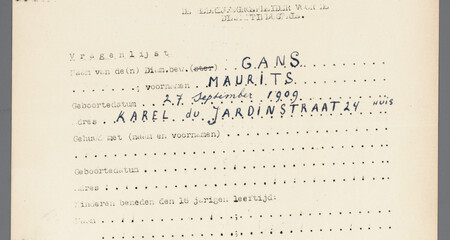 DIENSTTIJD
V r a g e n l i j s t
Naam van de(n) Dienb.eu.(ster) . . GANS . . . . .
. . . . . . ; voornamen . . MAURITS . . . . .
Geboortedatum . . 27 September 1909 . . . .
Adres . . KAREL du JARDINSTRAAT 24 HUIS
Gehuwd met (naam en voornamen) . . . . . . . . .
Geboortedatum . . . . . . . . . . . . . . . .
Adres . . . . . . . . . . . . . . . . . . . .
Kinderen beneden den 16 jarigen leeftijd:
Naam . . . . . . . . . . . . . . . . . . . .